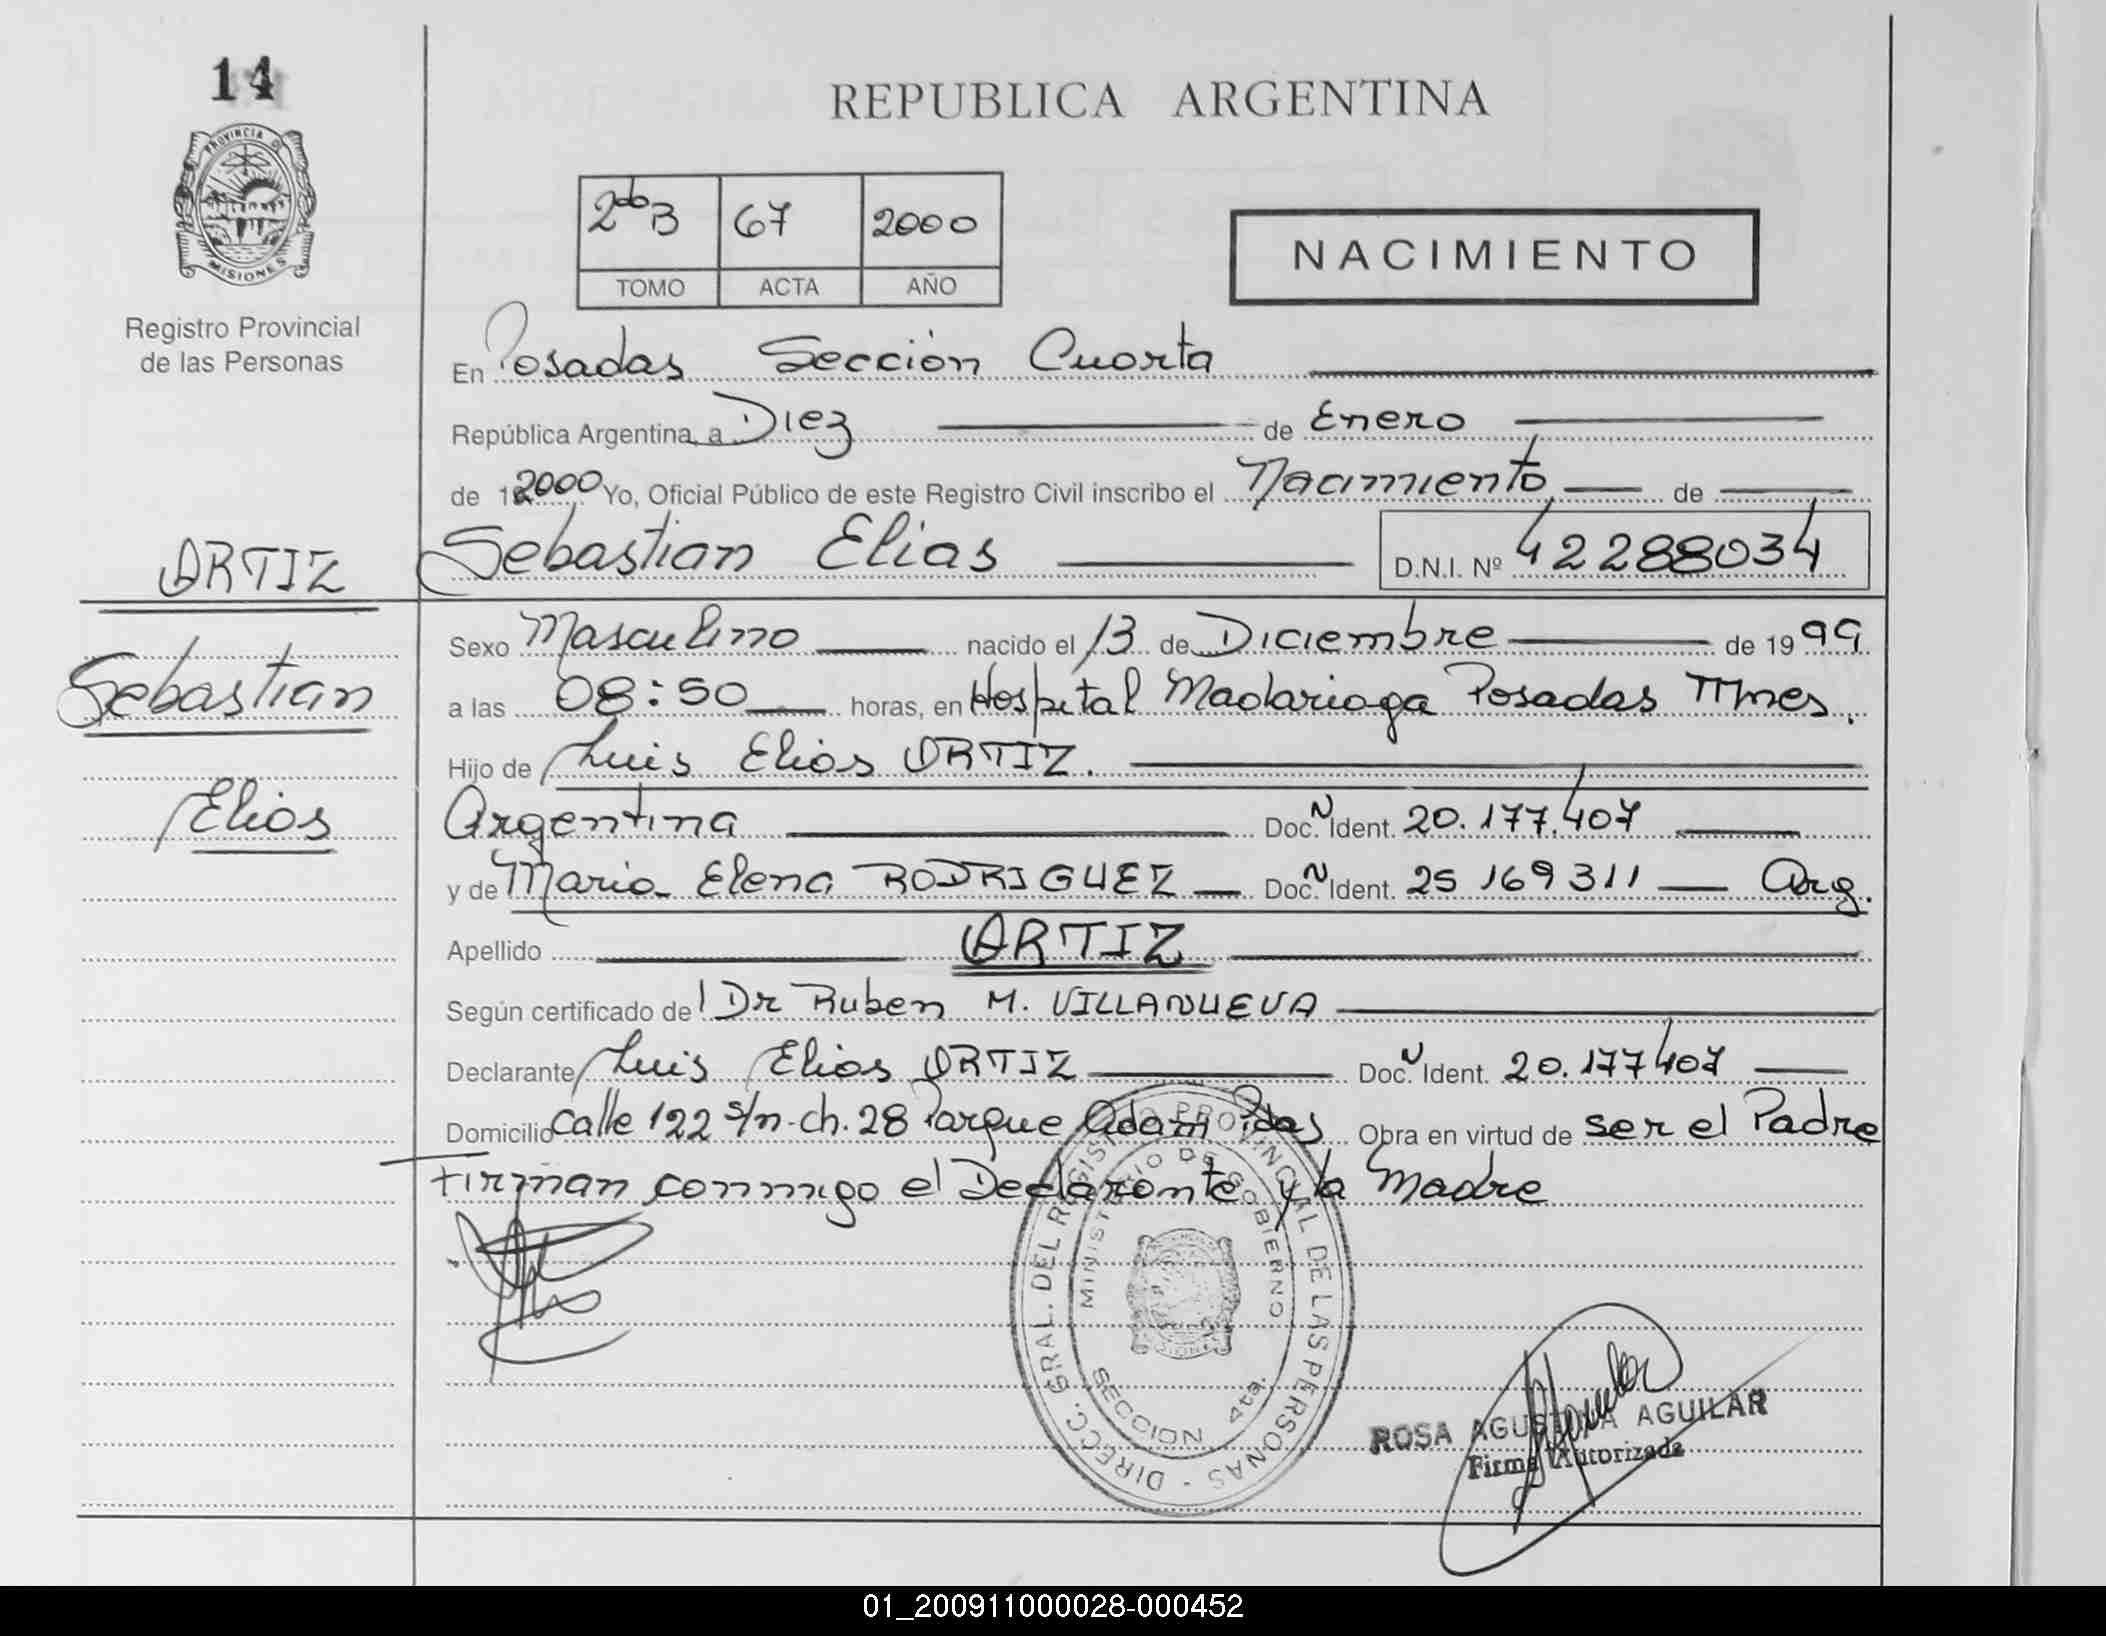 14
PROVINCIA D
MISIONES
Registro Provincial
de las Personas
REPUBLICA ARGENTINA
2do B 67 2000
TOMO ACTA AÑO
NACIMIENTO
En Posadas Sección Cuarta
República Argentina, a Diez de Enero
de 19 2000 Yo, Oficial Público de este Registro Civil inscribo el Nacimiento de
Sebastian Elias D.N.I. Nº 42288034
ORTIZ
Sebastian
Elias
Sexo Masculino nacido el 13 de Diciembre de 1999
a las 08:50 horas, en Hospital Madariaga Posadas Mnes.
Hijo de Luis Elias ORTIZ.
Argentina Doc. N Ident. 20.177.407
y de Maria Elena RODRIGUEZ Doc. N Ident. 25 169 311 Arg.
Apellido ORTIZ
Según certificado de Dr Ruben M. VILLANUEVA
Declarante Luis Elias ORTIZ Doc. N Ident. 20.177407
Domicilio calle 122 s/n-ch.28 Parque Adam Pdas Obra en virtud de ser el Padre
Firman conmigo el Declarante y la Madre
DIRECC. GRAL. DEL REGISTRO PROVINCIAL DE LAS PERSONAS -
MINISTERIO DE GOBIERNO
SECCION 4ta.
ROSA AGUSTINA AGUILAR
Firma Autorizada
01_200911000028-000452